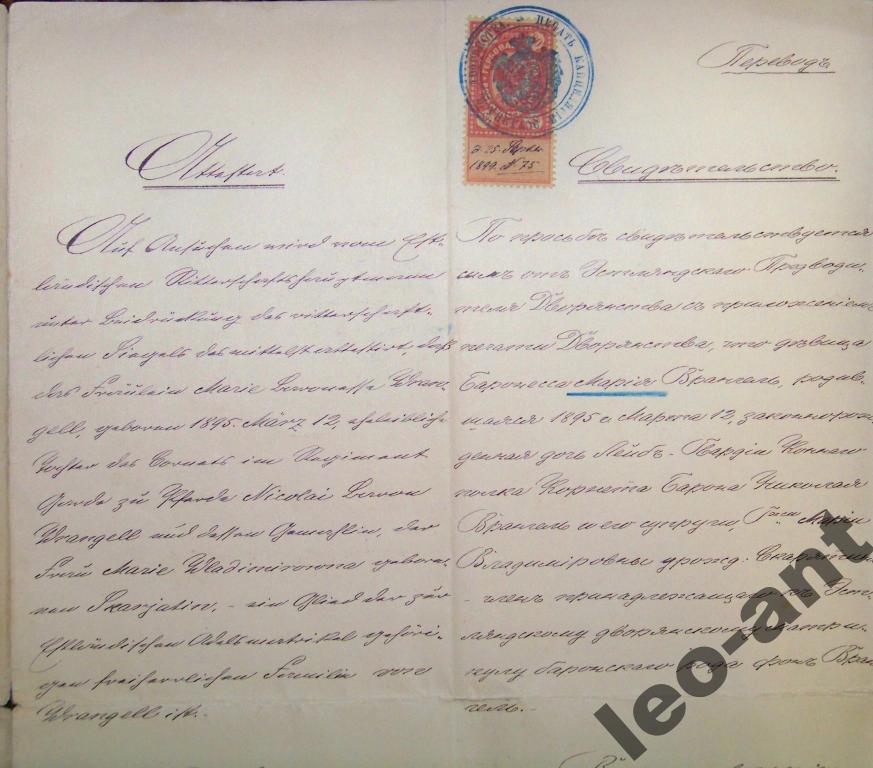 Переводъ
ПЕЧАТЬ КАНЦЕЛЯРІИ
25. 
1899. № 75
Attestat.
Auf Ansuchen wird vom Est-
ländischen Ritterschaftshauptmann
unter Beidrückung des ritterschaft-
lichen Siegels desmittelst attestirt, daß
das Fräulein Marie Baronesse Wran-
gell, geboren 1895. März 12, eheleibliche
Tochter des Cornets im Regiment
Garde zu Pferde Nicolai Baron
Wrangell und dessen Gemahlin, der
Frau Marie Wladimirowna gebore-
nen Skarjatin, - ein Glied der zur
Estländischen Adelsmatrikel gehöri-
gen freiherrlichen Familie von
Wrangell ist. -
Свидѣтельство.
По просьбѣ свидѣтельствуется
симъ отъ Эстляндскаго Предводи-
теля Дворянства съ приложеніемъ
печати Дворянства, что дѣвица
Баронесса Марія Врангель, родив-
шаяся 1895 г. Марта 12, законнорож-
денная дочь Лейбъ-Гвардіи Коннаго
полка Корнета Барона Николая
Врангель и его супруги, Г-жи Маріи
Владиміровны урожд: Скарятин
- членъ принадлежащаго къ Эст-
ляндскому дворянскому матри-
кулу баронскаго рода фонъ Вран-
гель. -
leo-ant